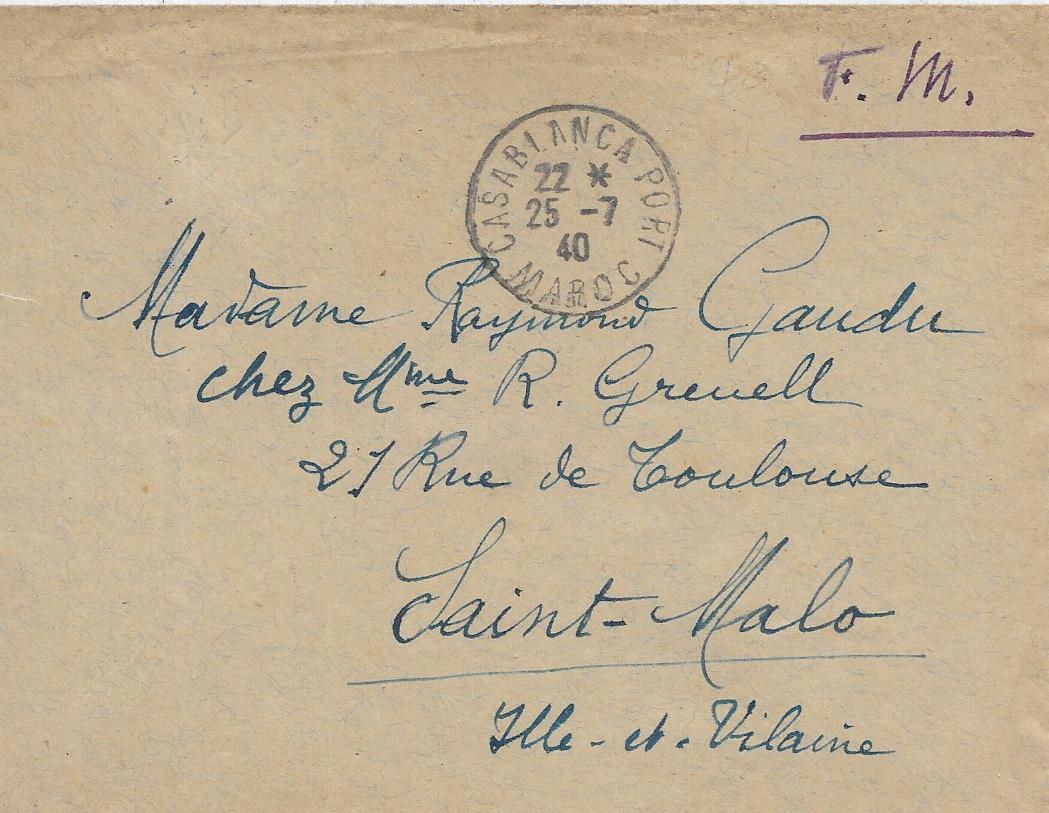 F. M.
CASABLANCA PORT
22 *
25 -7
40
MAROC
Madame Raymond Gaudu
chez Mme R. Grenell
21 Rue de Toulouse
Saint-Malo
Ille-et-Vilaine